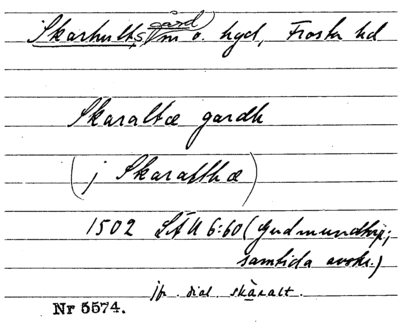 gård
Skarhults m o. hgd, Frosta hd
Skaraltæ gardh
(j Skaratthæ)
1502 LÄU 6:60 (Gudmundtorp;
samtida avskr.)
jfr dial skàralt.
Nr 5574.